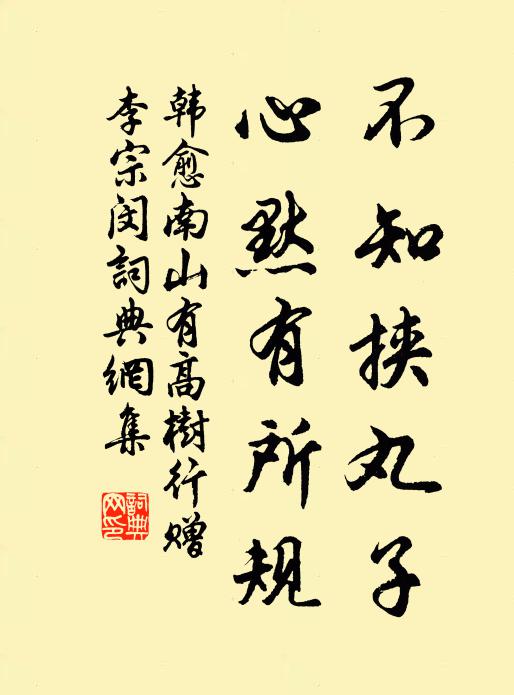 不知挟丸子
心默有所规
韩愈南山有高樹行赠
李宗闵詞典網集
詞典網印